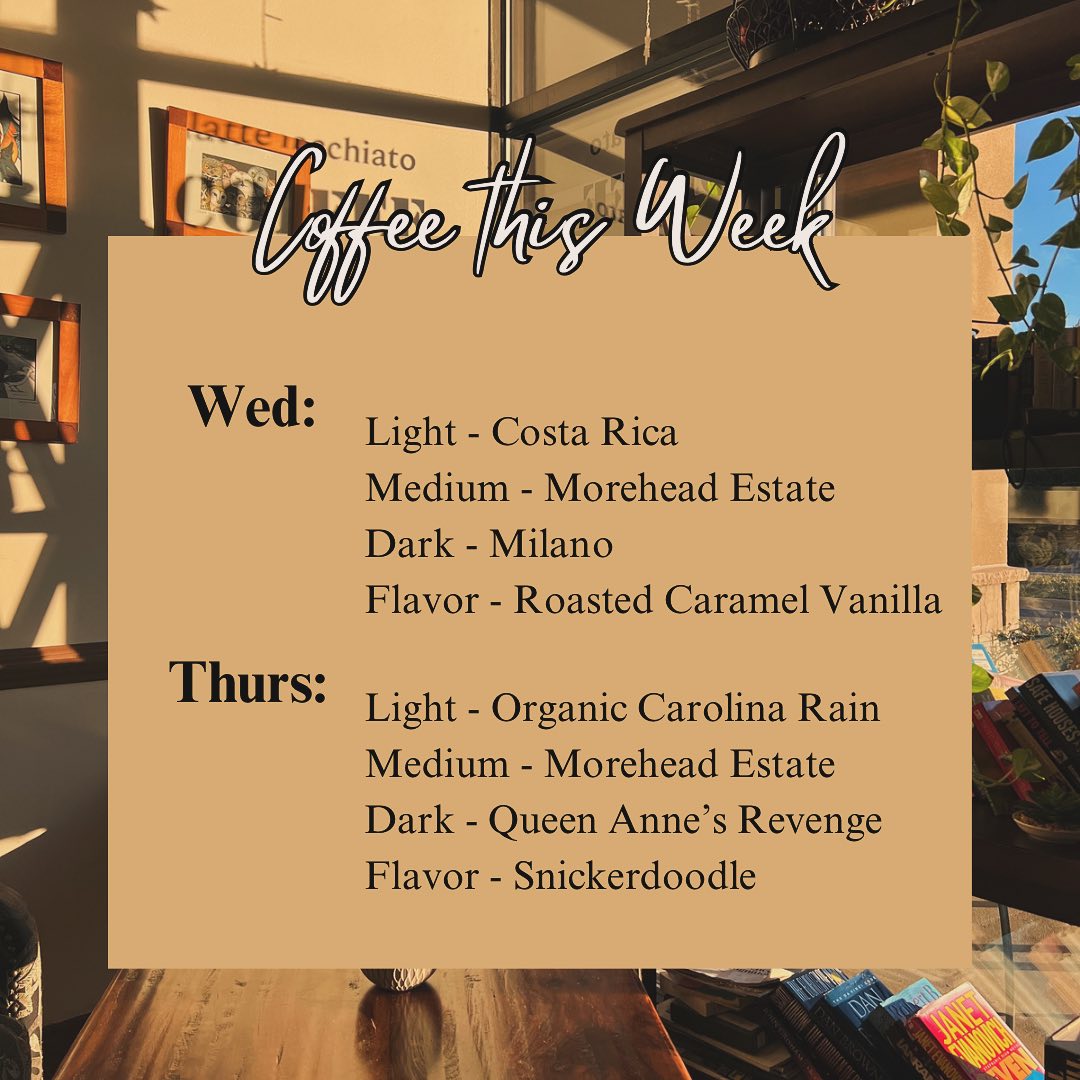 latte
chiato
Coffee this Week
Wed:
Light - Costa Rica
Medium - Morehead Estate
Dark - Milano
Flavor - Roasted Caramel Vanilla
Thurs:
Light - Organic Carolina Rain
Medium - Morehead Estate
Dark - Queen Anne’s Revenge
Flavor - Snickerdoodle
SAFE HOUSES
DAN
JANET